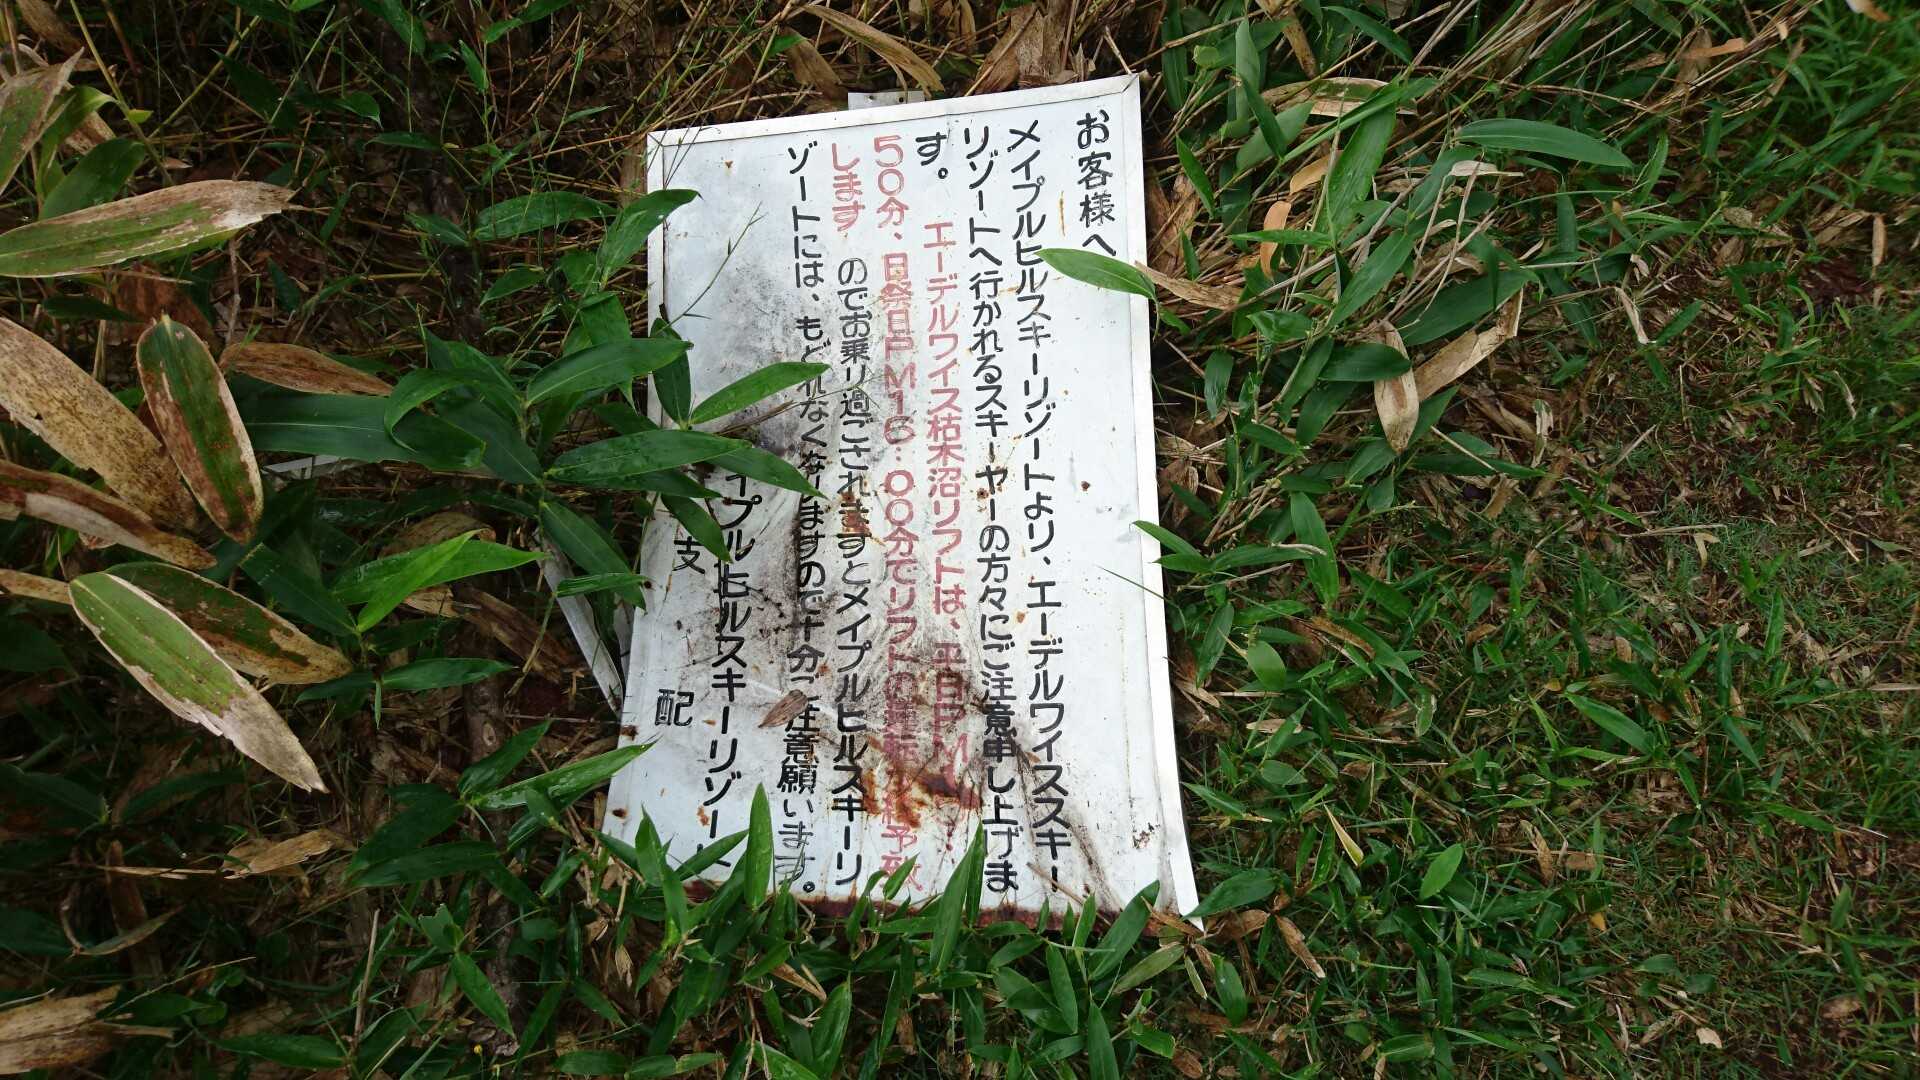 お客様へ
メイプルヒルスキーリゾートより、エーデルワイススキー
リゾートへ行かれるスキーヤーの方々にご注意申し上げま
す。 エーデルワイス枯木沼リフトは、平日PM
50分、日祭日PM16:00分でリフトの運転
します のでお乗り過ごされますとメイプルヒルスキーリ
ゾートには、もどれなくなりますので十分ご注意願います。
イプルヒルスキーリゾート
支 配